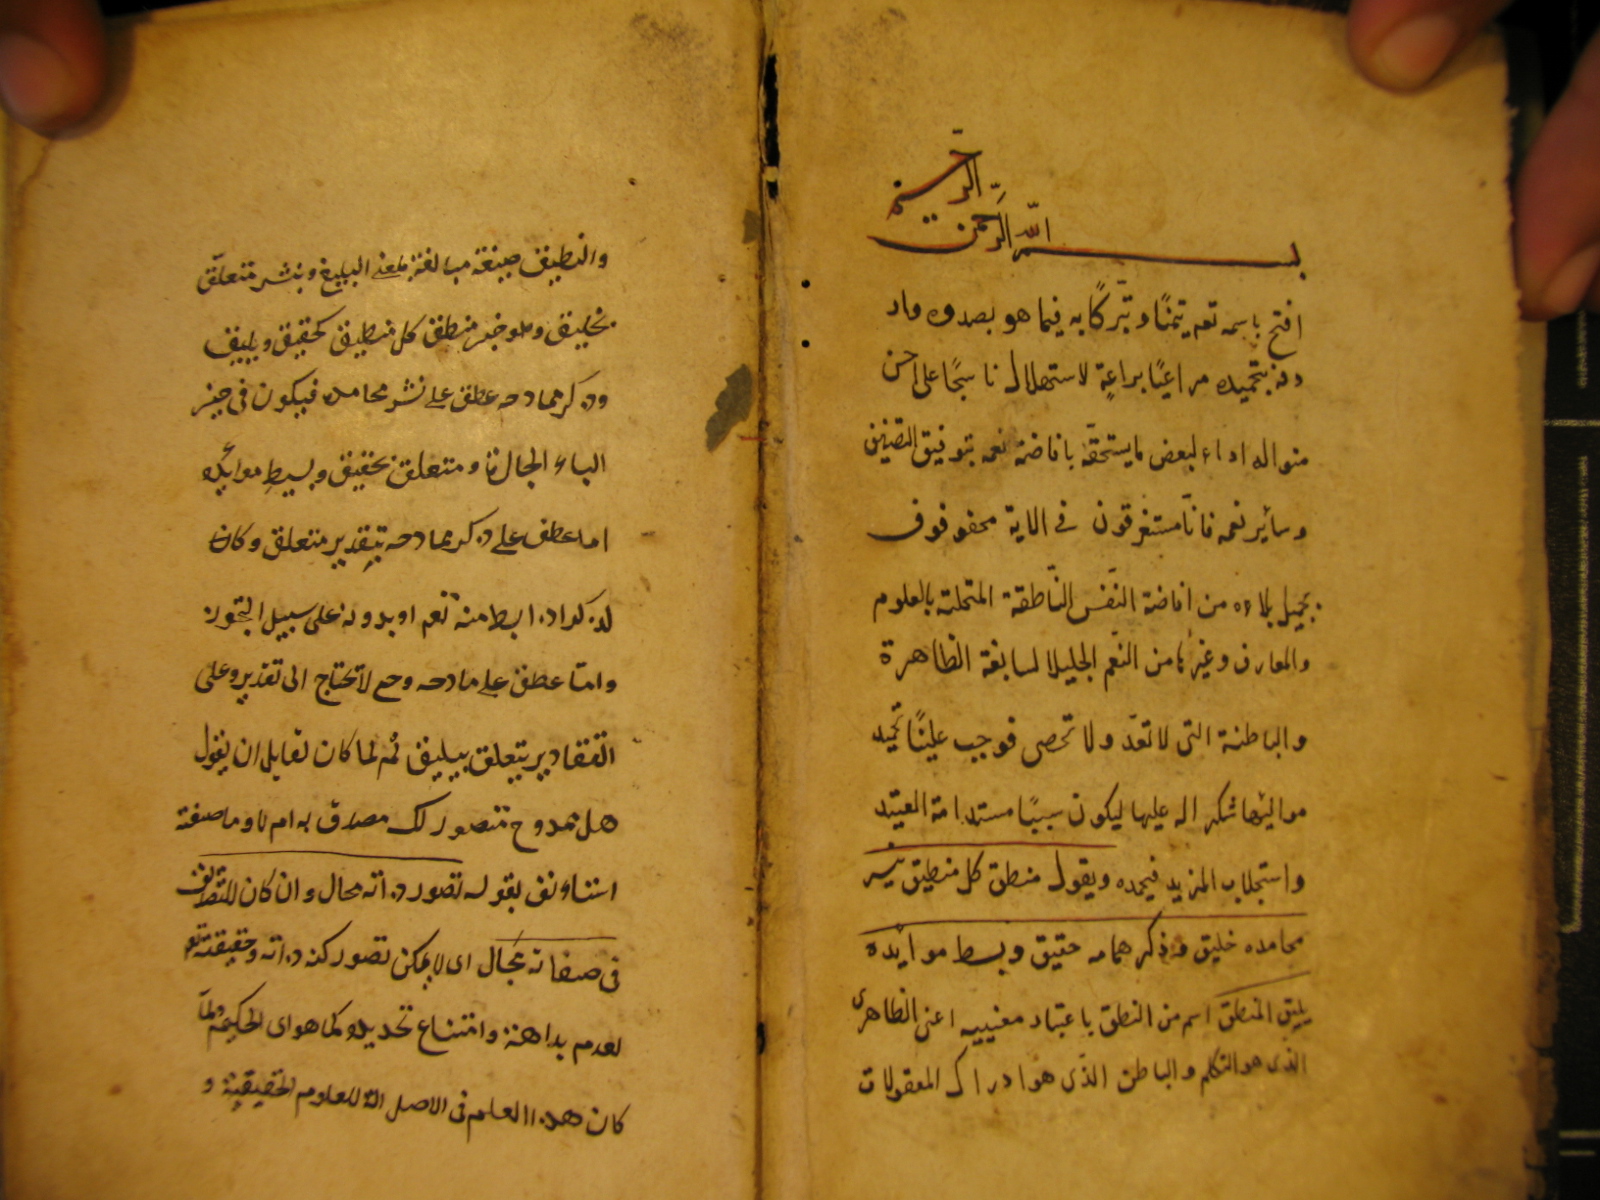 بسم الله الرحمن الرحيم
افتتح باسمه تعم تيمنًا و تبّركًا به فيما هو بصدده واد
دفه بتحميده مراعيًا براعةٍ لاستهلاله ناسجًا على احسن
منواله اداء لبعض ما يستحقّه بافاضة نعمه بتوفيق التصنيف
وسائر نعمه فانّا مستغرقون في الاية محفوفون
بجميل بلاءه من افاضة النّفس النّاطقة المتحلّية بالعلوم
والمعارف وغيرها من النّعم الجليلا لسابغة الظاهرة
والباطنة التى لا تعدّ ولا تحصى فوجب علينا تحميد
موليها شكر اله عليها ليكون سببًا مستدامة العتيد
واستجلاب المزيد فيحمده ويقول منطق كل منطيق بنشر
محامده خليق وذكر ممادحه حقيق وبسط موايده
يليق المنطق اسم من النطق باعتبار معنييه اعنى الظاهرى
الذى هو التكلم والباطن الذّى هو ادراك المعقولات
والنطيق صيغة مبالغة بمعنى البليغ وبنشر متعلّق
بخليق وهو خبر منطق كل منطيق كحقيق ويليق
وذكر ممادحه عطف على نشر محامده فيكون فى حيز
الباء الجارة ومتعلق بحقيق وبسيط موائده
اما عطف على ذكر ممادحه بتقدير متعلق وكان
لذكر اداه ابسط منه نعم او بدونه على سبيل التجوز
وامّا عطف على مادحه وحـ لا تحتاج الى تقدير وعلى
التقادير يتعلق بيليق ثم لما كان لقايل ان يقول
هل ممدوح متصور لك مصدق به ام لا وما صفته
استأنف بقوله تصور ذاته محال وان كان للتصرف
فى صفاته مجال اى لا يمكن تصور كنه ذاته وحقيقته تعم
لعدم بداهته وامتناع تحديده كما هو اى الحكيم ولمّا
كان هذا العلم فى الاصل الة للعلوم الحقيقية و